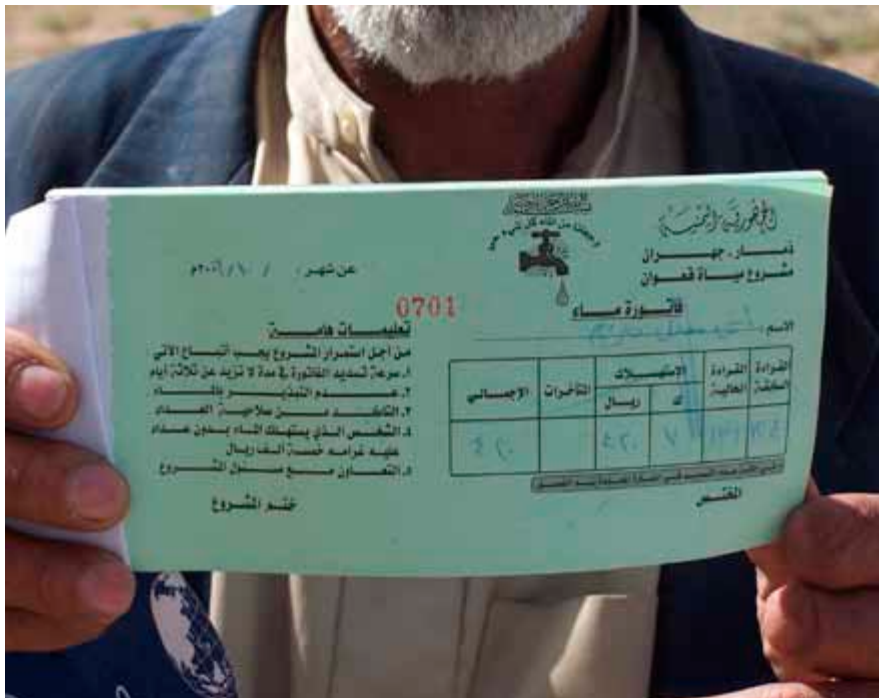 الجمهورية اليمنية
ذمار - جهران
مشروع مياة قعوان
وجعلنا من الماء كل شيء حي
عن شهر / /
0701
فاتورة مــاء
الاسم :
القراءة السابقة
القراءة الحالية
الاستهــلاك
ك
ريــال
المتأخرات
الإجمــالي
المختص
تعليمــات هامــة
من أجل استمرار المشروع يجب اتباع الآتي :
١. سرعة تسديد الفاتورة في مدة لا تزيد عن ثلاثة أيام
٢. عــدم التبذيــر بالمــاء
٣. التأكــد مــن صلاحيــة العــداد
٤. الشخص الذي يستهلك الماء بدون عــداد
عليه غرامه خمسة الف ريال
٥. التعــاون مــع مسئول المشــروع
ختم المشروع